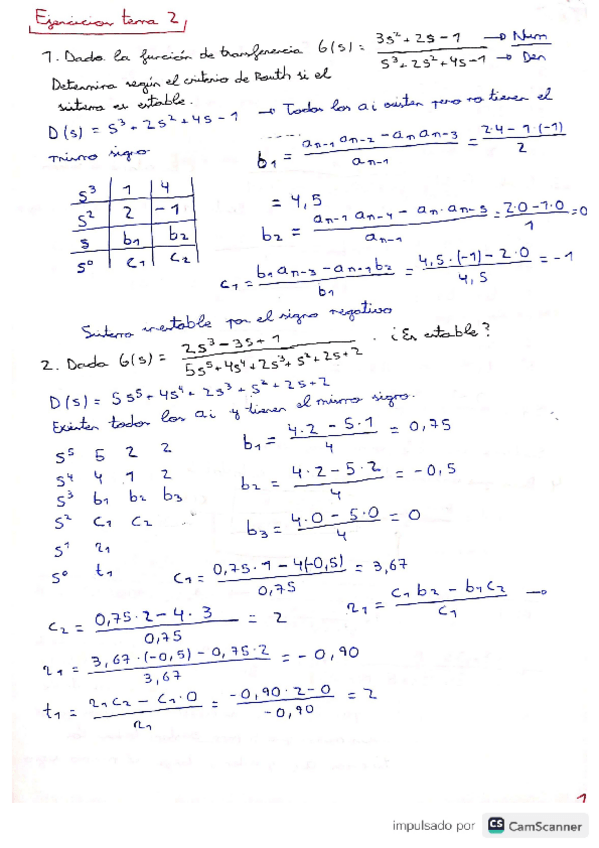 Ejercicios tema 2
1. Dado la función de transferencia G(s) = (3s² + 2s - 1) / (s³ + 2s² + 4s - 1) → Num → Den
Determina según el criterio de Routh si el
sistema es estable.
D(s) = s³ + 2s² + 4s - 1 → Todos los ai existen pero no tienen el
mismo signo.
b1 = (an-1 an-2 - an an-3) / an-1 = (2·4 - 1·(-1)) / 2
= 4,5
s³ 1 4
s² 2 -1
s b1 b2
s⁰ c1 c2
b2 = (an-1 an-4 - an · an-5) / an-1 = (2·0 - 1·0) / 1 = 0
c1 = (b1 an-3 - an-1 b2) / b1 = (4,5·(-1) - 2·0) / 4,5 = -1
Sistema inestable por el signo negativo
2. Dada G(s) = (2s³ - 3s + 1) / (5s⁵ + 4s⁴ + 2s³ + s² + 2s + 2) . ¿Es estable?
D(s) = 5s⁵ + 4s⁴ + 2s³ + s² + 2s + 2
Existen todos los ai y tienen el mismo signo.
s⁵ 5 2 2
s⁴ 4 1 2
s³ b1 b2 b3
s² c1 c2
s¹ r1
s⁰ t1
b1 = (4·2 - 5·1) / 4 = 0,75
b2 = (4·2 - 5·2) / 4 = -0,5
b3 = (4·0 - 5·0) / 4 = 0
c1 = (0,75·1 - 4(-0,5)) / 0,75 = 3,67
c2 = (0,75·2 - 4·3) / 0,75 = 2
r1 = (c1 b2 - b1 c2) / c1 →
r1 = (3,67·(-0,5) - 0,75·2) / 3,67 = -0,90
t1 = (r1 c2 - c1·0) / r1 = (-0,90·2 - 0) / -0,90 = 2
1
impulsado por CS CamScanner